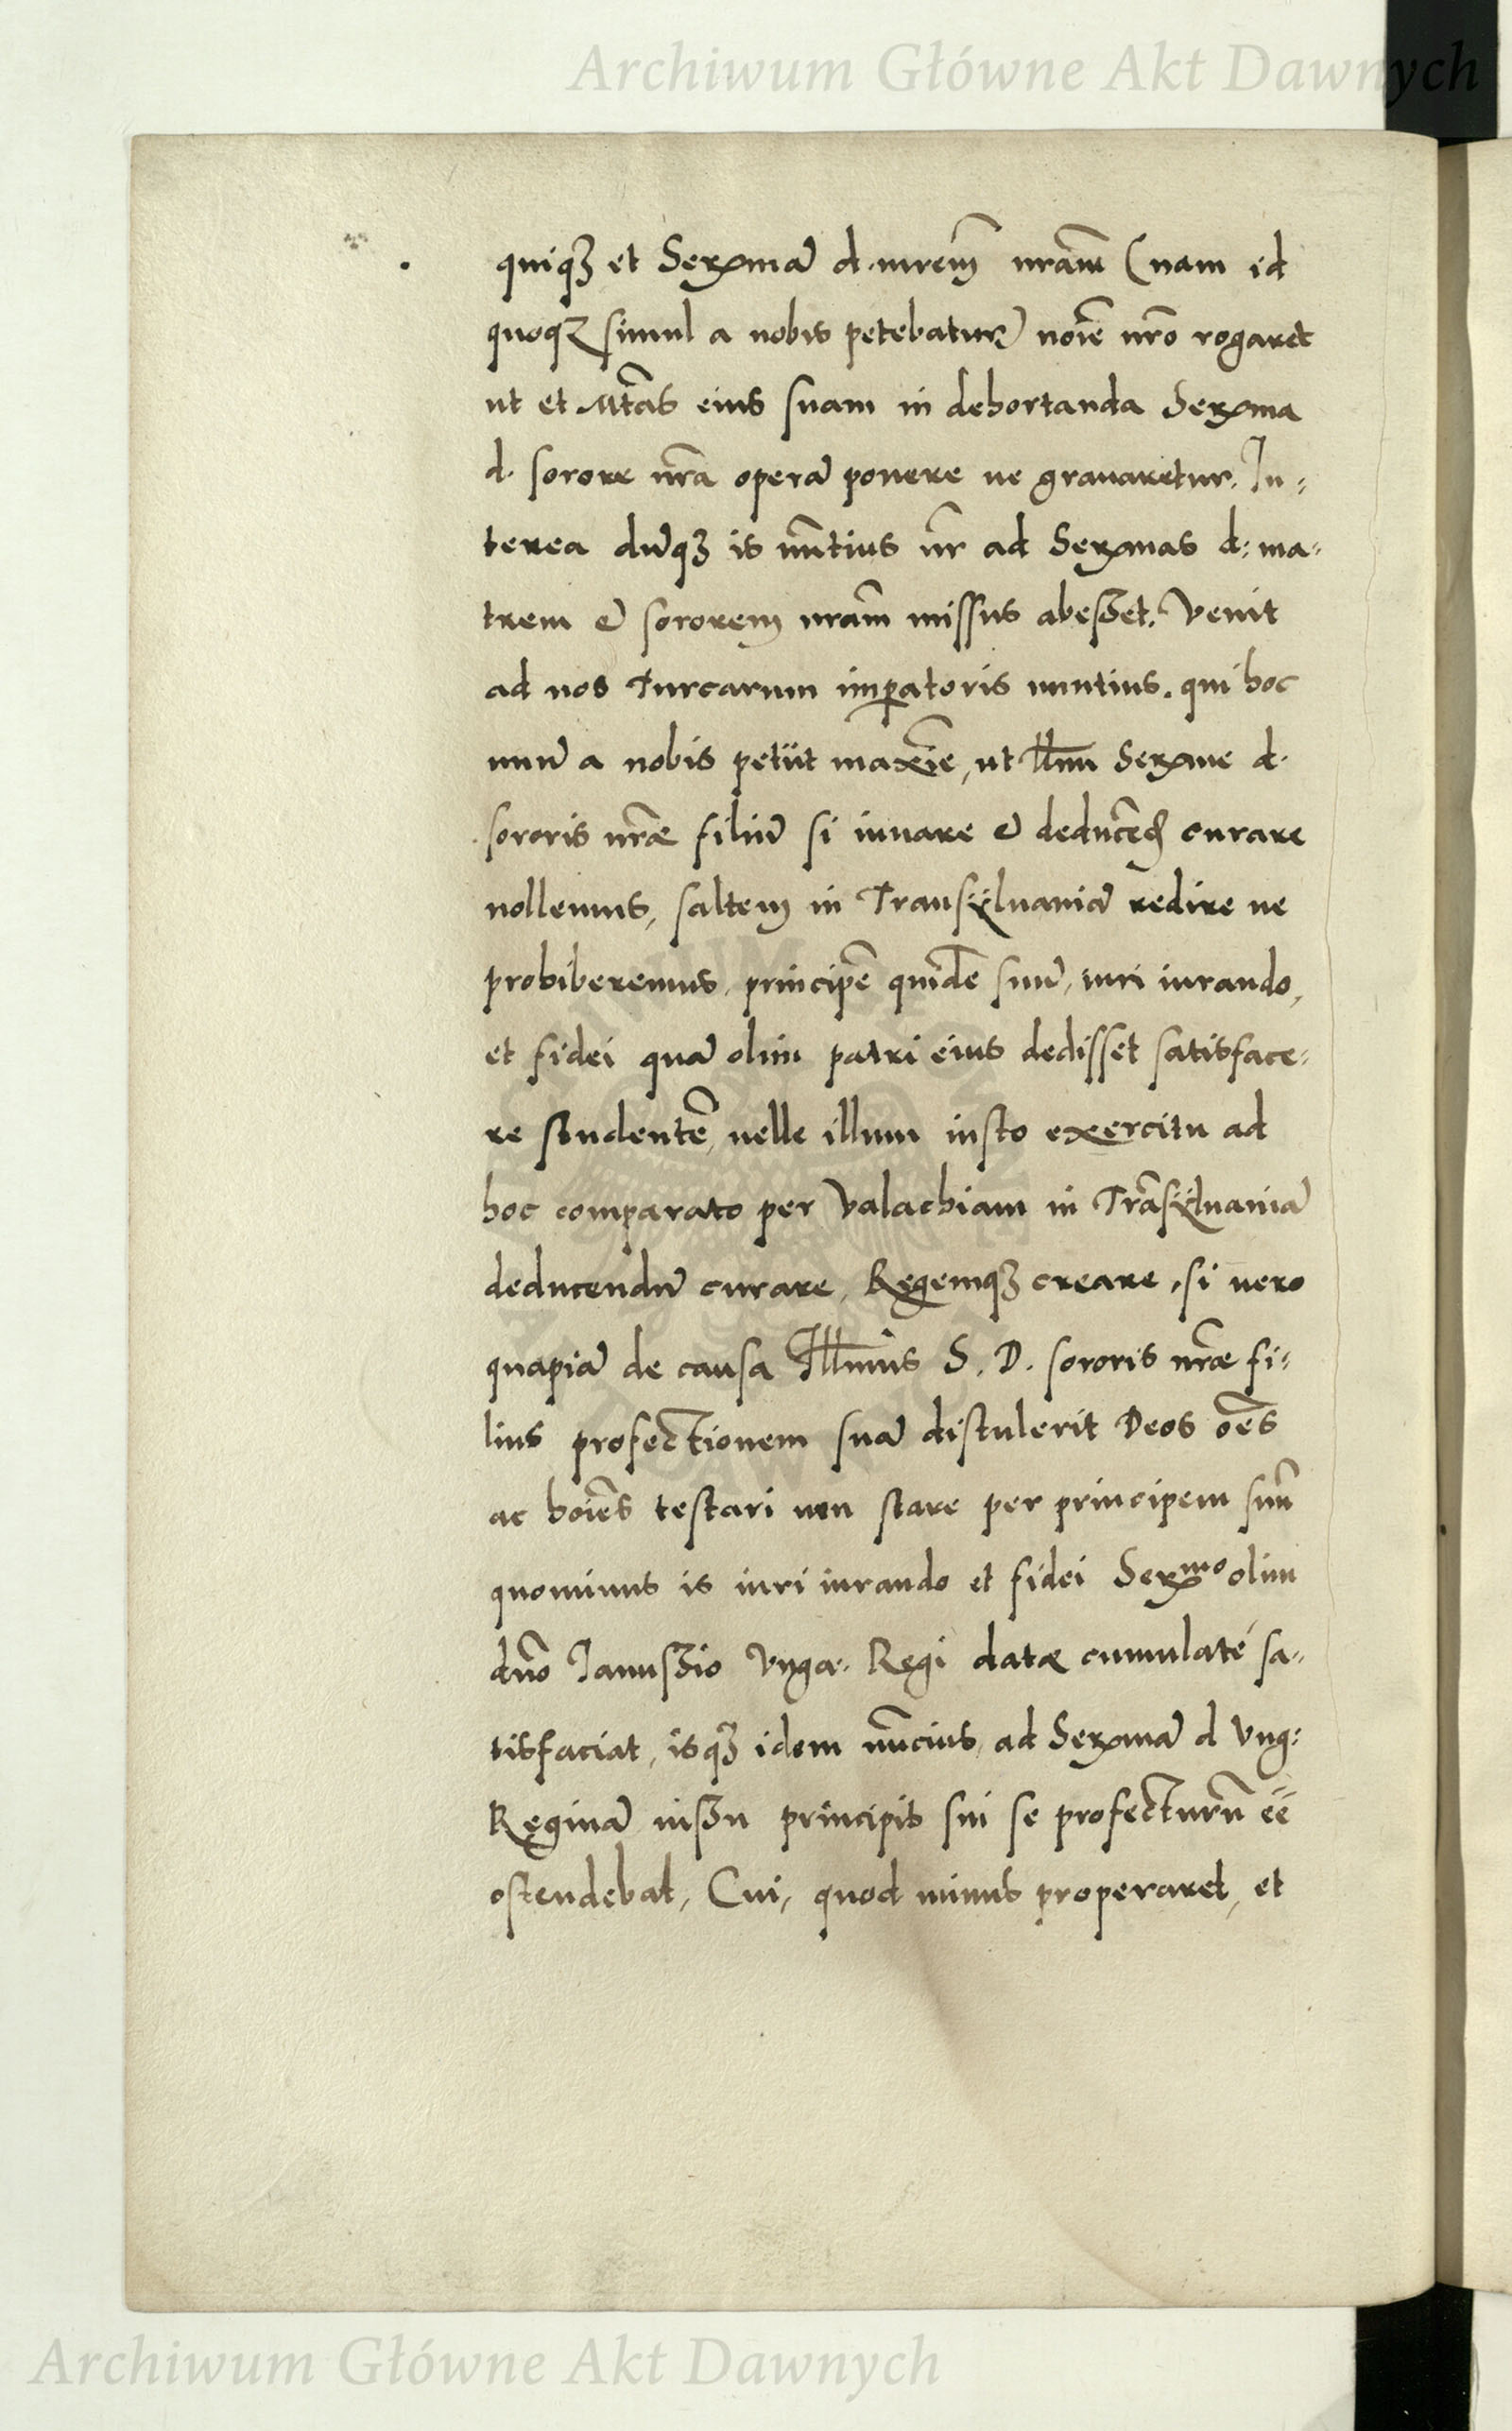 Archiwum Główne Akt Dawnych
quiqꝫ et Serxmā d. mrem̄ nram̄ (nam id
quoqꝫ simul a nobis petebatur) noīe nrō rogaret
ut et Mtās eius suam in dehortanda Serxma
d. sorore nrā operā ponere ne grauaretur. In-
terea dūqꝫ is nūtius nr̄ ad Serxmas d: ma-
trem & sororem nram̄ missus abesset. Venit
ad nos Turcarum imꝑatoris nuntius. qui hoc
unū a nobis petiit maxīe, ut Illm̄ Serxme d.
sororis nrāe filiū si iuuare & deducēdū curare
nollemus, saltem in Transyluaniā redire ne
prohiberemus, principē quidē suū, iuri iurando,
et fidei quā olim patri eius dedisset satisface-
re studentē, uelle illum iusto exercitu ad
hoc comparato per Valachiam in Trāsyluaniā
deducendū curare, Regemqꝫ creare, si uero
quapiā de causa Illmūs S. D. sororis nrāe fi-
lius profectionem suā distulerit Deos oēs
ac hoīes testari non stare per principem suū
quominus is iuri iurando et fidei Serxmo olim
dnō Janussio Unga. Regi datæ cumulaté sa-
tisfaciat, isqꝫ idem nūcius, ad Serxmā d Ung:
Reginā iussu principis sui se profecturū eē
ostendebat, Cui, quod minus properaret, et
Archiwum Główne Akt Dawnych